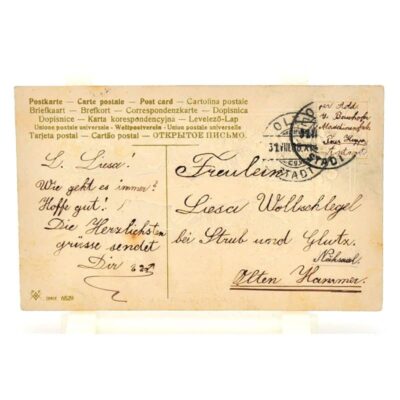 Postkarte – Carte postale – Post card – Cartolina postale
Briefkaart – Brefkort – Correspondenzkarte – Dopisnica
Dopisnice – Karta korespondencyjna – Levelező-Lap
Unione postale universelle – Weltpostverein – Union postale universelle
Tarjeta postal – Cartão postal – ОТКРЫТОЕ ПИСЬМО.
OLTEN
31.VIII.
STADT
STADT
L. Liesa!
Wie geht es immer?
Hoffe gut!
Die Herzlichsten
grüsse sendet
Dir
Freulein
Liesa Wollschlegel
bei Strub und Glutz.
Olten Hammer.
6529